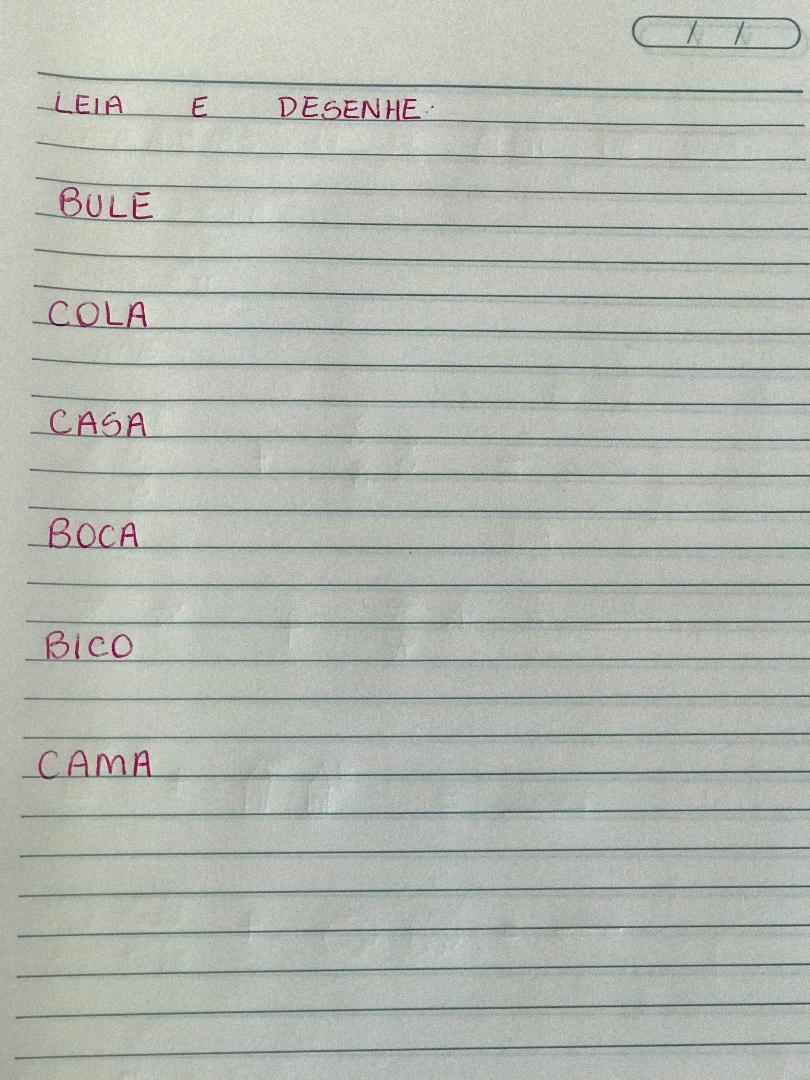 LEIA E DESENHE:
BULE
COLA
CASA
BOCA
BICO
CAMA